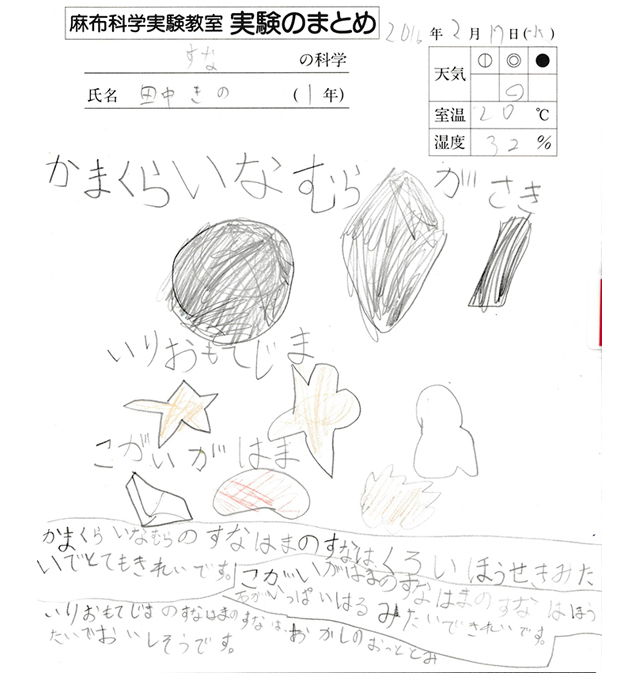 麻布科学実験教室 実験のまとめ 2016年2月17日(水)
すな の科学
天気
氏名 田中 きの (1年)
室温 20 ℃
湿度 32 %
かまくらいなむらがさき
いりおもてじま
こがいがはま
かまくら いなむらの すなはまのすなは くろい ほうせきみた
いでとてもきれいです。
こがいがはまのすなはまの すなは ほう
みたいできれいです。
いりおもてじまのすなはまのすなは、おかしのおっととみ
たいでおいしそうです。